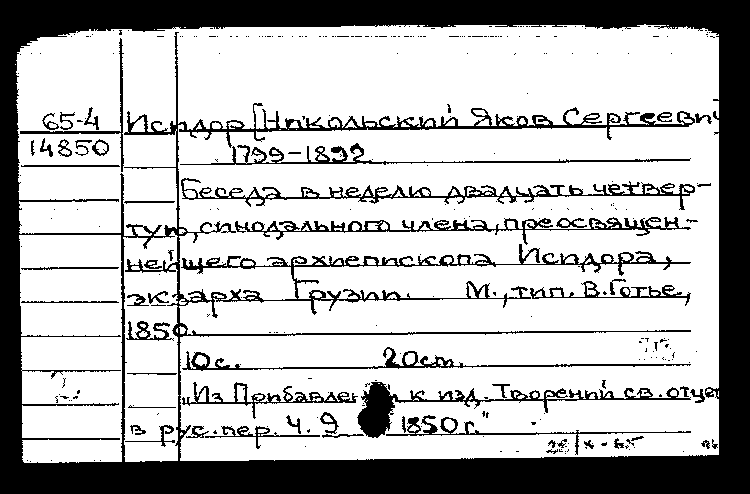 65-4 Исидор [Никольский Яков Сергеевич
14850 1799-1892
Беседа в неделю двадцать четвер-
тую, синодального члена, преосвящен-
нейщего архиепископа Исидора,
экзарха Грузии. М., тип. В. Готье,
1850.
10 с. 20 см.
2
„Из Прибавлен к изд. Творений св. отце
в рус. пер. Ч. 9 1850 г."
28/X-65